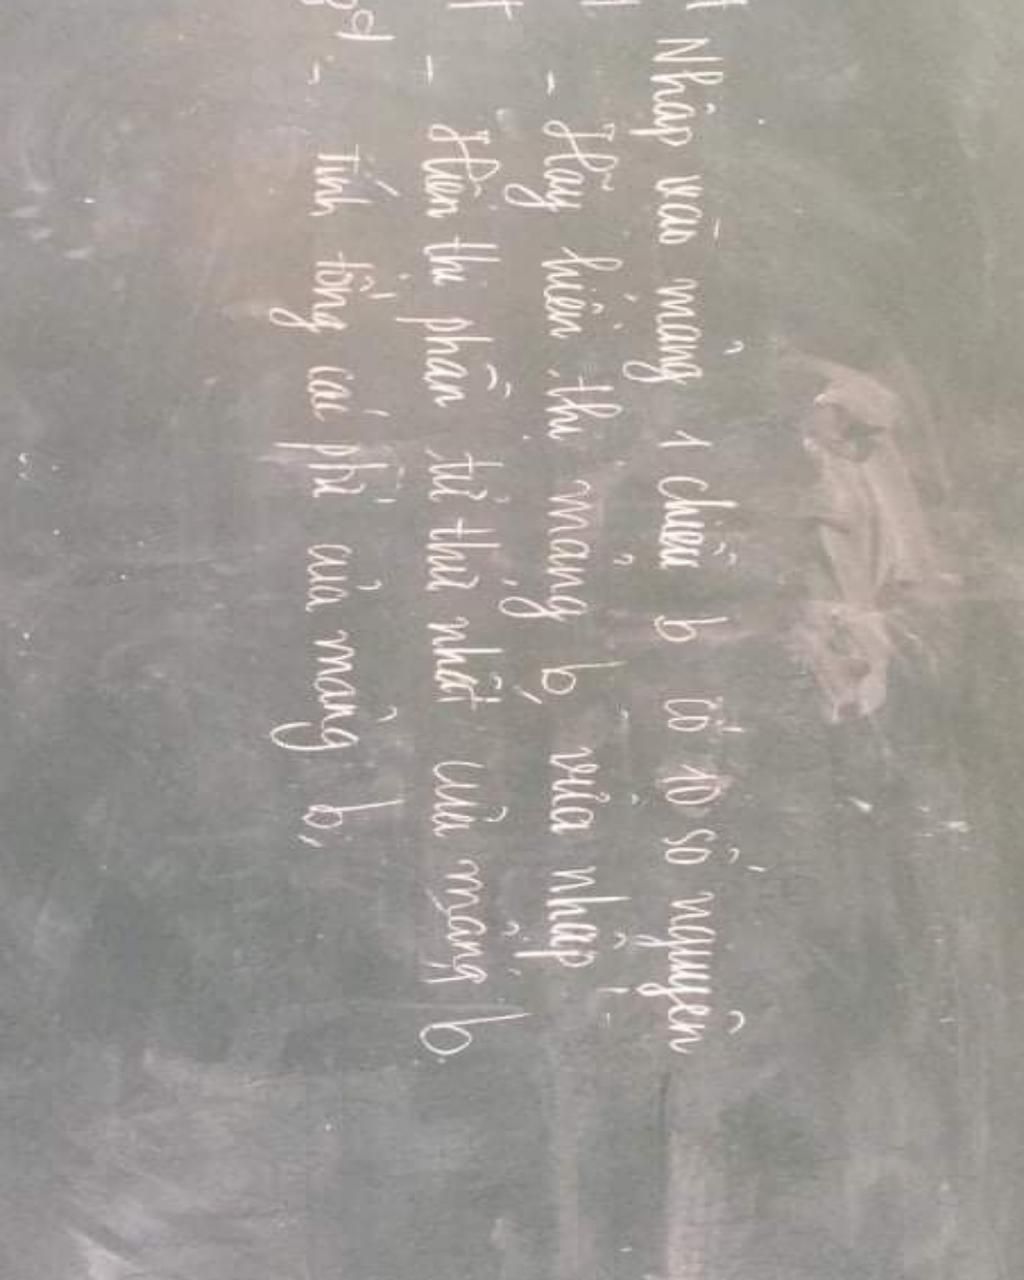 Nhập vào mảng 1 chiều b có 10 số nguyên
- Hãy hiển thị mảng b, vừa nhập
- Hiển thị phần tử thứ nhất của mảng b
- Tính tổng các ptử của mảng b,